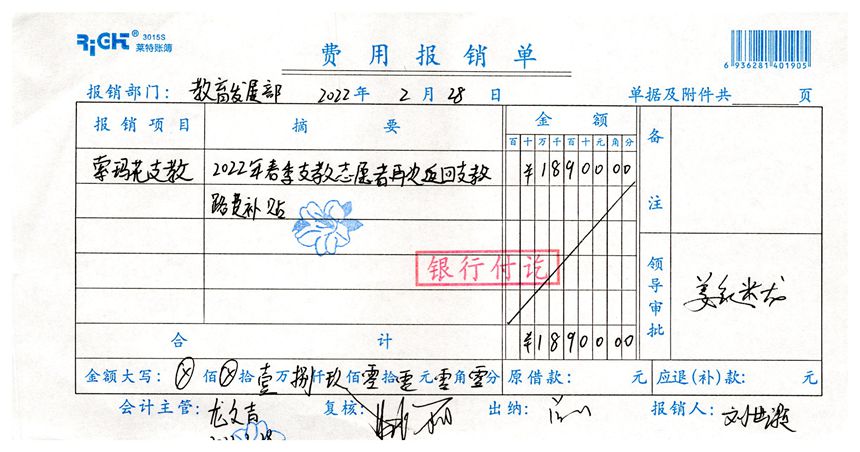 RiGHT® 3015S 莱特账簿
费用报销单
6 936281 401905
报销部门：教育发展部 2022年2月28日 单据及附件共 页
报销项目 摘要 金额 备注
百十万千百十元角分
索玛花支教 2022年春季支教志愿者再次返回支教 ¥1890000
路费补贴
银行付讫
领导审批
合计 ¥1890000
金额大写：ⓧ佰ⓧ拾壹万捌仟玖佰零拾零元零角零分 原借款： 元 应退(补)款： 元
会计主管：龙文吉 复核： 出纳： 报销人：